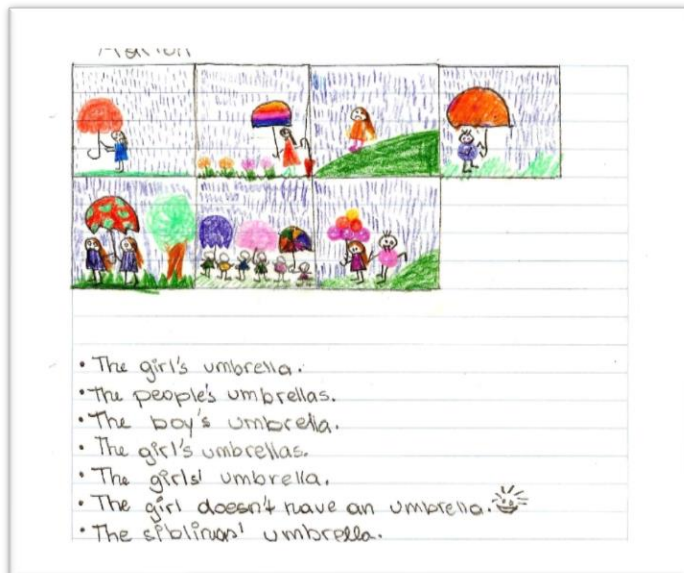 • The girl's umbrella.
• The people's umbrellas.
• The boy's umbrella.
• The girl's umbrellas.
• The girls' umbrella.
• The girl doesn't have an umbrella.
• The siblings' umbrella.